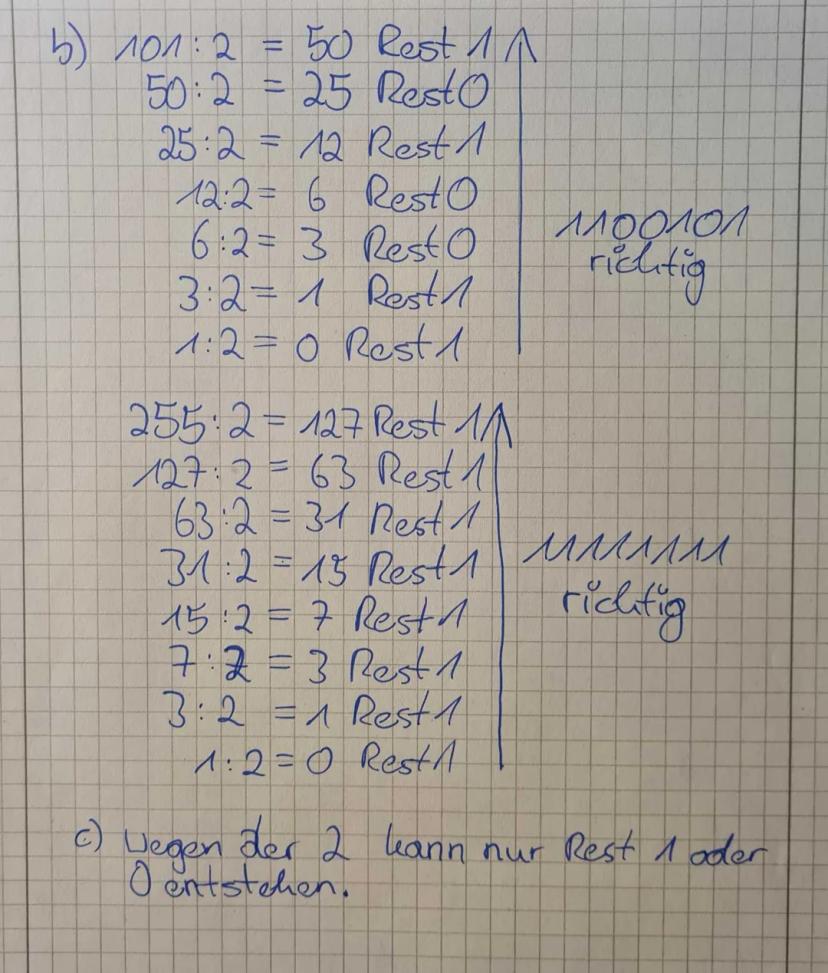 b) 101 : 2 = 50 Rest 1
50 : 2 = 25 Rest 0
25 : 2 = 12 Rest 1
12 : 2 = 6 Rest 0
6 : 2 = 3 Rest 0
3 : 2 = 1 Rest 1
1 : 2 = 0 Rest 1
1100101
richtig
255 : 2 = 127 Rest 1
127 : 2 = 63 Rest 1
63 : 2 = 31 Rest 1
31 : 2 = 15 Rest 1
15 : 2 = 7 Rest 1
7 : 2 = 3 Rest 1
3 : 2 = 1 Rest 1
1 : 2 = 0 Rest 1
11111111
richtig
c) Wegen der 2 kann nur Rest 1 oder
0 entstehen.